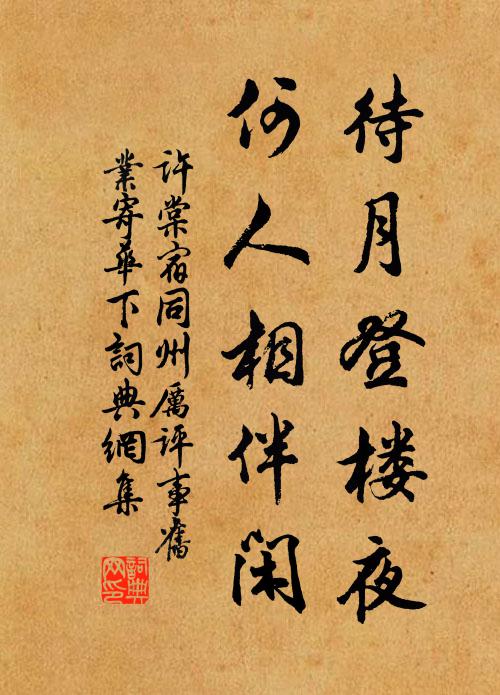 待月登楼夜
何人相伴闲
許棠宿同州厲評事舊
業寄華下詞典網集
詞典网印